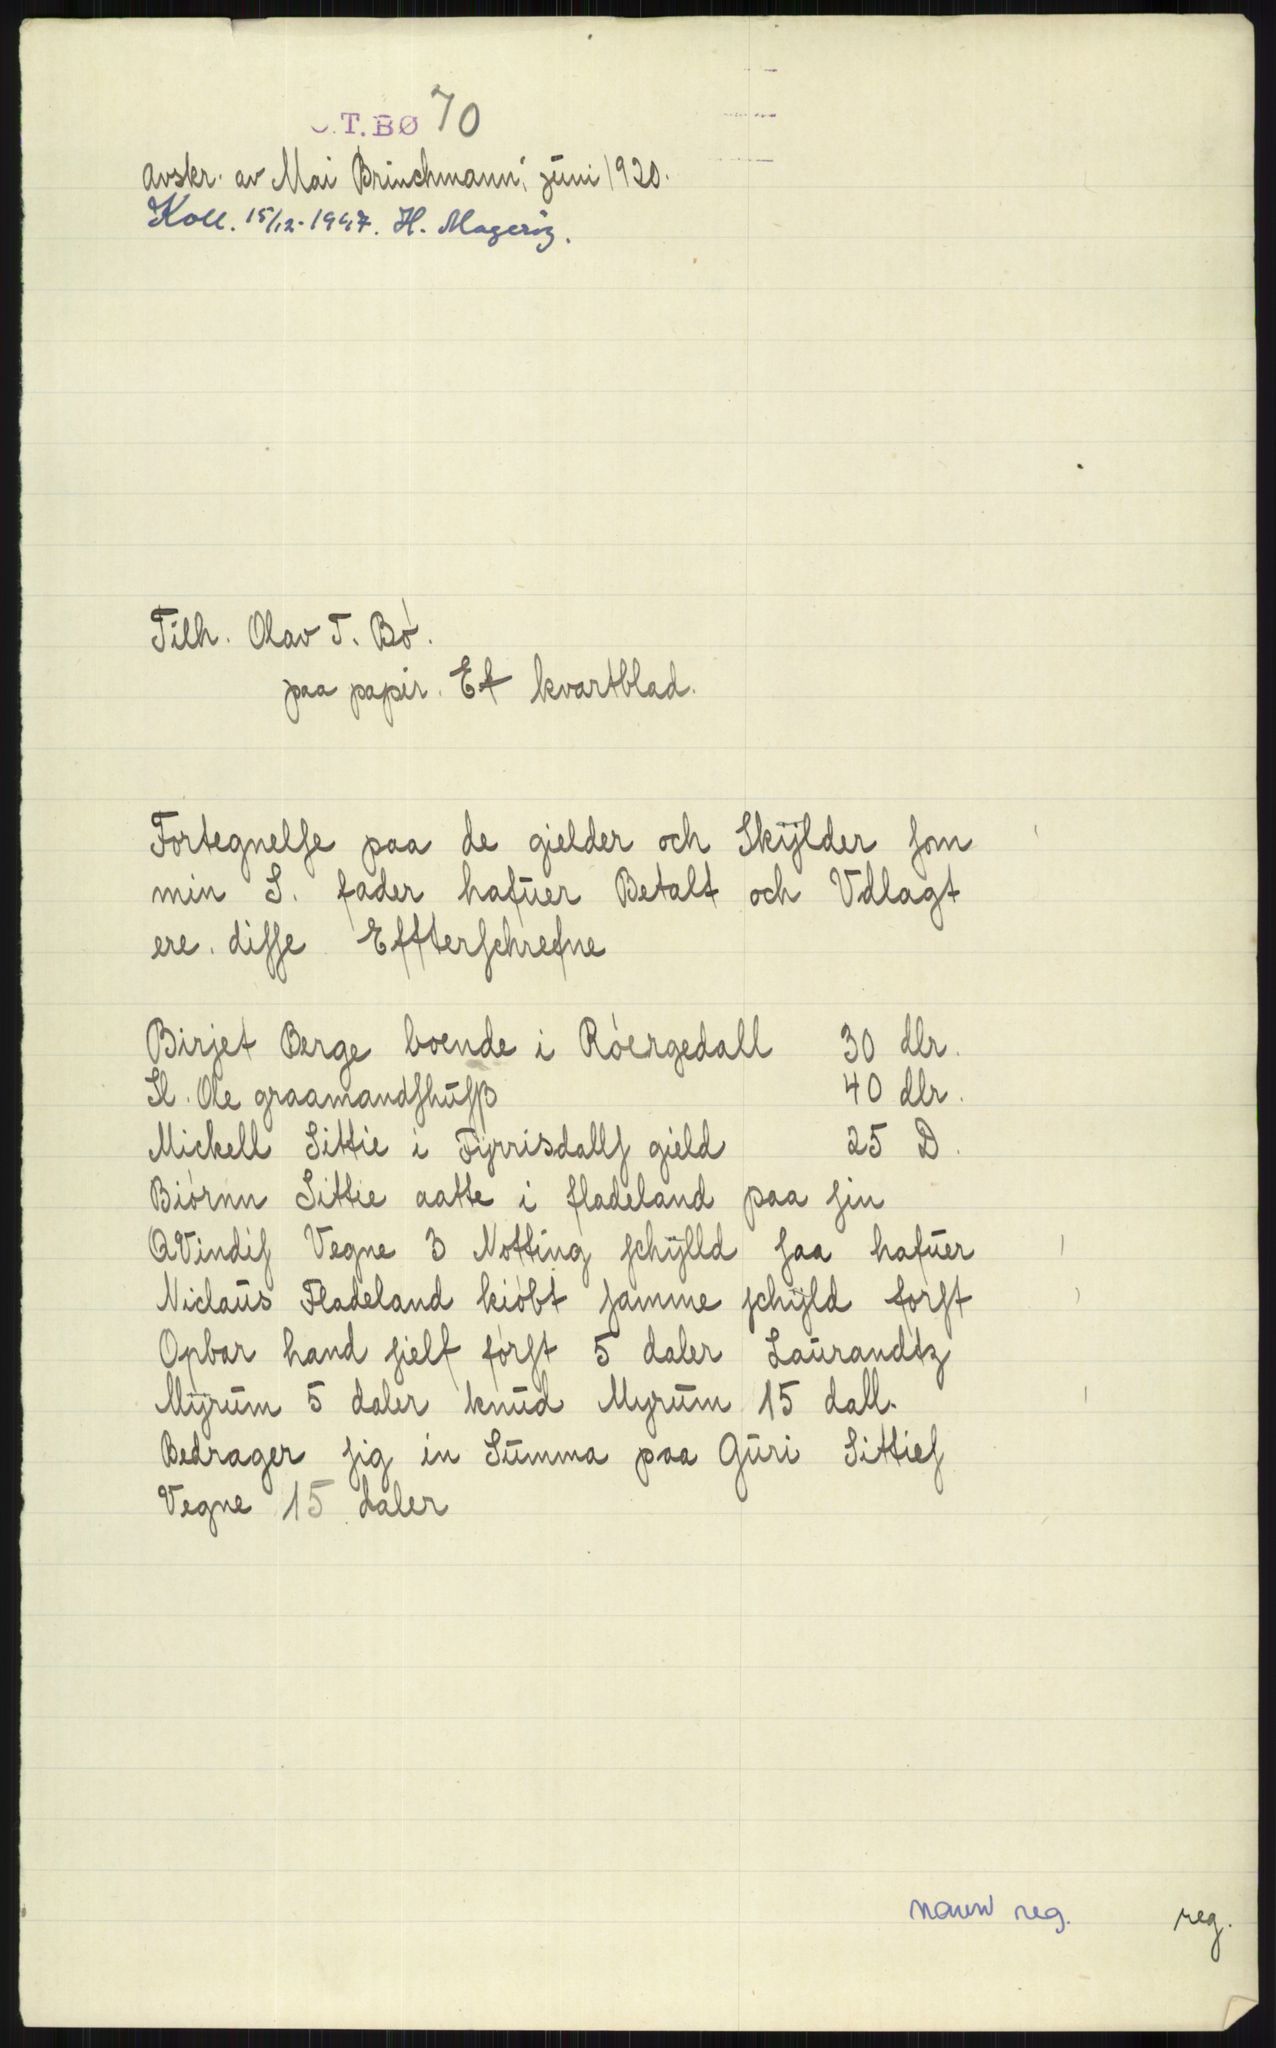 O.T.BØ 70
Avskr. av Mai Brinchmann, juni 1920.
Koll. 15/12-1947. H. Magerøy.
Tilh. Olav T. Bø.
paa papir. Et kvartblad.
Fortegnelſe paa de gielder och Skÿlder ſom
min S. fader hafuer Betalt och Vdlagt
ere. diſſe Effterſchrefne
Birjet Berge boende i Röergedall 30 dlr.
Sl. Ole graamandſhuſß 40 dlr.
Mickell Sittie i Fÿrrisdallſ gield 25 D.
Biörnn Sittie aatte i fladeland paa ſin
QVindiſ Vegne 3 Notting ſchÿlld ſaa hafuer
Niclaus Fladeland kiöbt ſamme ſchÿld förſt
Opbar hand ſielf förſt 5 daler Laurandtz
Mÿrum 5 daler knud Mÿrum 15 dall.
Bedrager ſig in Summa paa Guri Sittieſ
Vegne 15 daler
navn reg.
reg.